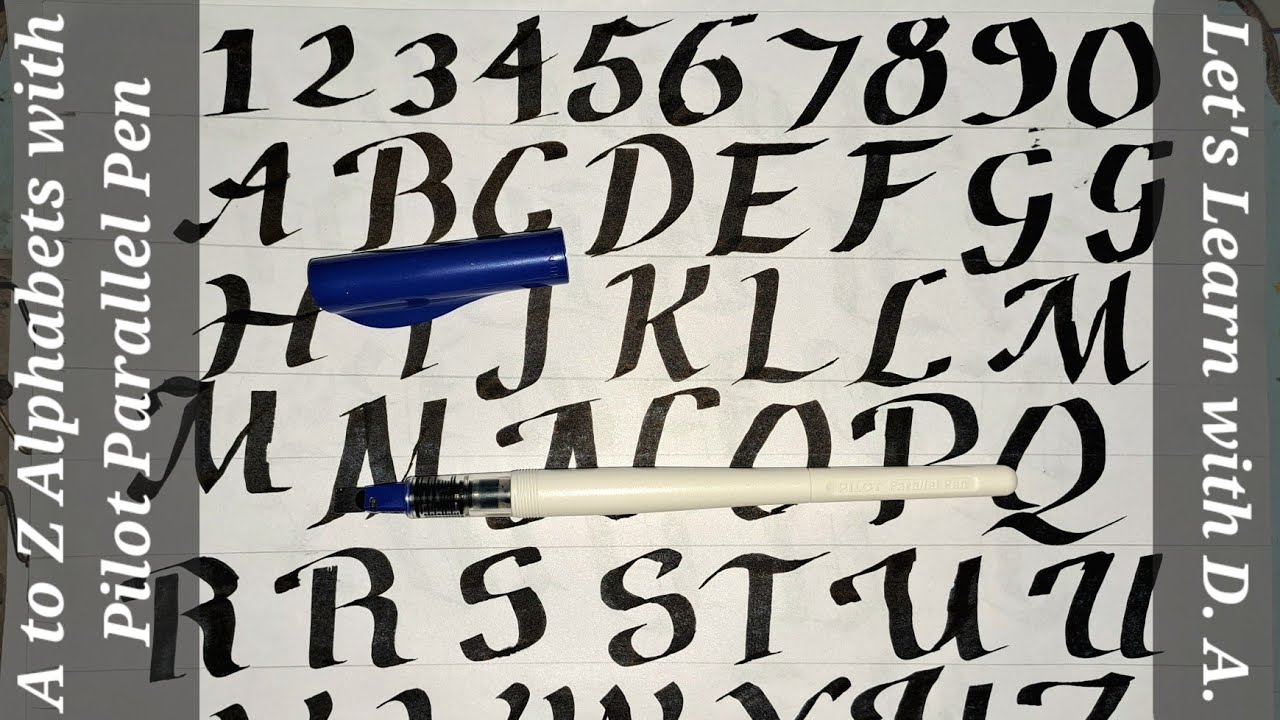 A to Z Alphabets with
Pilot Parallel Pen
1 2 3 4 5 6 7 8 9 0
A B C D E F G G
H I J K L L M
M N N O P Q
PILOT Parallel Pen
R R S S T U U
Let's Learn with D. A.